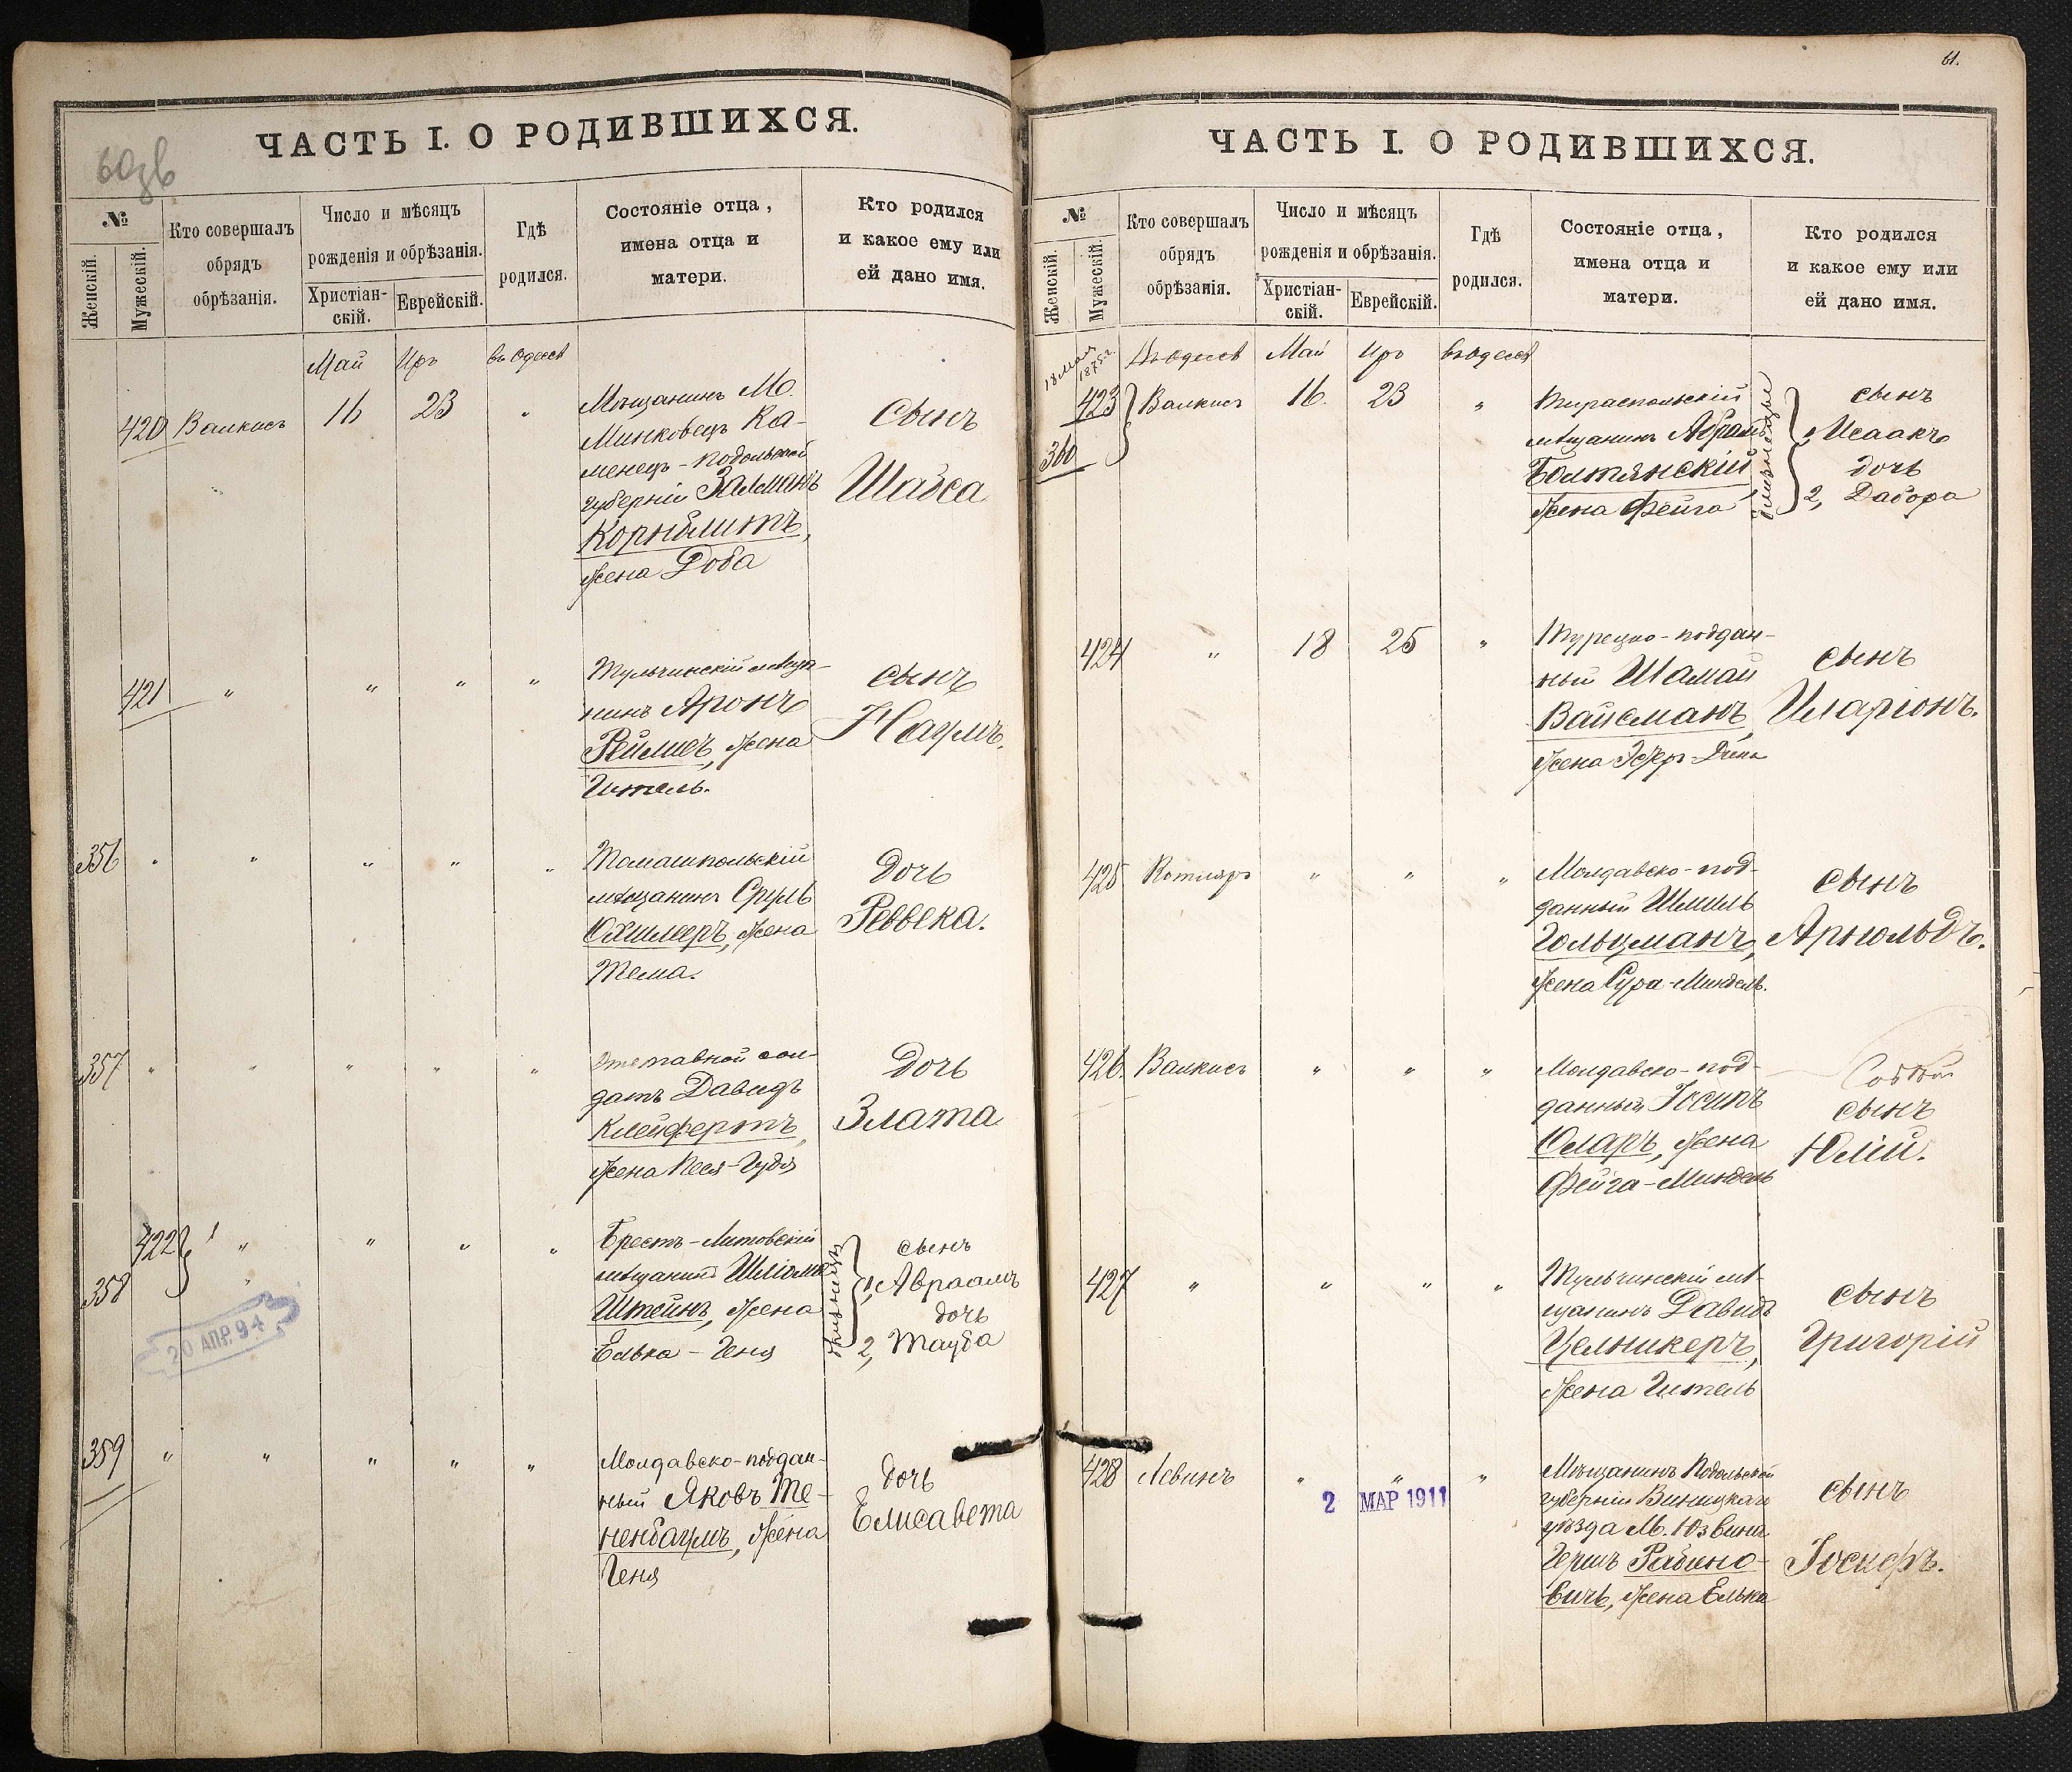 60зв
ЧАСТЬ I. О РОДИВШИХСЯ.
№
Женскій.
Мужескій.
Кто совершалъ
обрядъ
обрѣзанія.
Число и мѣсяцъ
рожденія и обрѣзанія.
Христіан-
скій.
Еврейскій.
Гдѣ
родился.
Состояніе отца,
имена отца и
матери.
Кто родился
и какое ему или
ей дано имя.
Май Иръ въ Одессѣ
420 Валкисъ 16 23 "
Мѣщанинъ М.
Минковецъ Ка-
менецъ-Подольской
губерніи Залманъ
жена Доба
Сынъ
Шабса
421 " " " "
Тульчинскій мѣща-
нинъ Аронъ
жена
Гитель.
сынъ
Наумъ.
356 " " " " "
Томашпольскій
мѣщанинъ Сруль
жена
Тема.
дочь
Реввека.
357 " " " " "
Отставной сол-
датъ Давидъ
Клейфертъ,
жена Песя-Гудя
дочь
Злата
422
358
" " " "
Брестъ-Литовскій
мѣщанинъ Шлiома
Штейнъ, жена
Елька-Геня
близнецы
сынъ
1, Авраамъ
дочь
2, Тауба
20 АПР. 94
359 " " " " "
Молдавско-поддан-
ный Яковъ Те-
ненбаумъ, жена
Геня
дочь
Елисавета
61.
ЧАСТЬ I. О РОДИВШИХСЯ.
№
Женскій.
Мужескій.
Кто совершалъ
обрядъ
обрѣзанія.
Число и мѣсяцъ
рожденія и обрѣзанія.
Христіан-
скій.
Еврейскій.
Гдѣ
родился.
Состояніе отца,
имена отца и
матери.
Кто родился
и какое ему или
ей дано имя.
18 мая
1875 г.
Въ Одессѣ Май Иръ въ Одессѣ
423 Валкисъ 16. 23 "
360
Тираспольскій
мѣщанинъ Абрамъ
Болтянскій
жена Фейга
близнецы
сынъ
Исаакъ
дочь
2, Дабора
424 " 18 25 "
Турецко-поддан-
ный Шамай
Вайсманъ,
жена
сынъ
Иларіонъ.
425 Котляръ " " "
Молдавско-под-
данный Шмиль
Гольцманъ,
жена Сура-Миндель.
сынъ
Арнольдъ.
426. Валкисъ " " "
Молдавско-под-
данный Іосипъ
Юларъ, жена
Фейга-Миндель
сынъ
Юлій.
427 " " " "
Тульчинскій мѣ-
щанинъ Давидъ
Целникеръ,
жена Гитель
сынъ
Григорій
428 Левинъ " " "
2 МАР 1911
Мѣщанинъ Подольской
губерніи Виницкаго
уѣзда М. Юзвина
Гершъ Рабино-
вичъ, жена Елька
сынъ
Іосифъ.